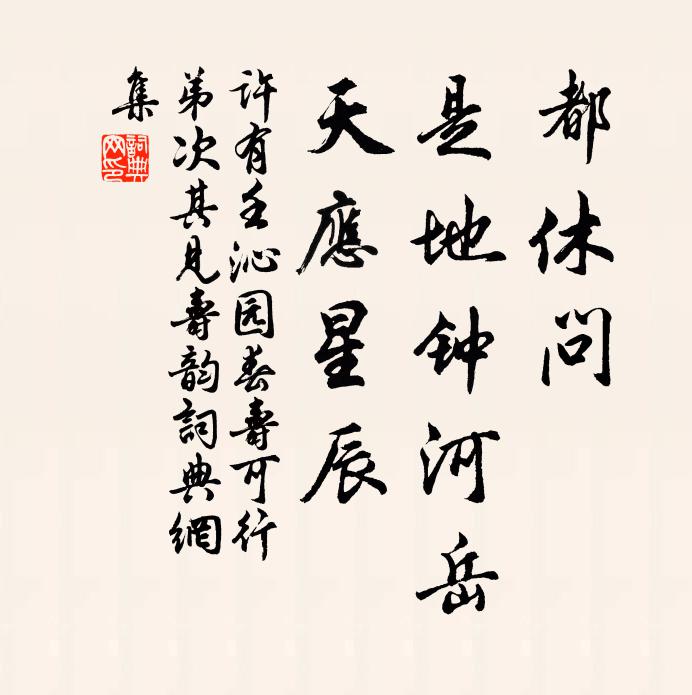 都休问
是地钟河岳
天應星辰
许有壬沁园春壽可行
弟次其兄壽韵詞典網
集
詞典網印